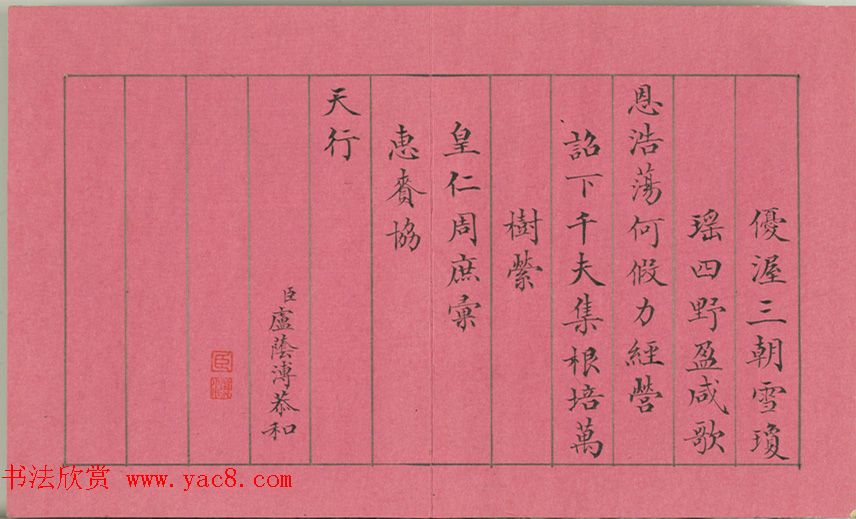 優渥三朝雪瓊
瑶四野盈咸歌
恩浩蕩何假力經營
詔下千夫集根培萬
樹縈
皇仁周庶彙
惠賚協
天行
臣盧蔭溥恭和
书法欣赏 www.yac8.com